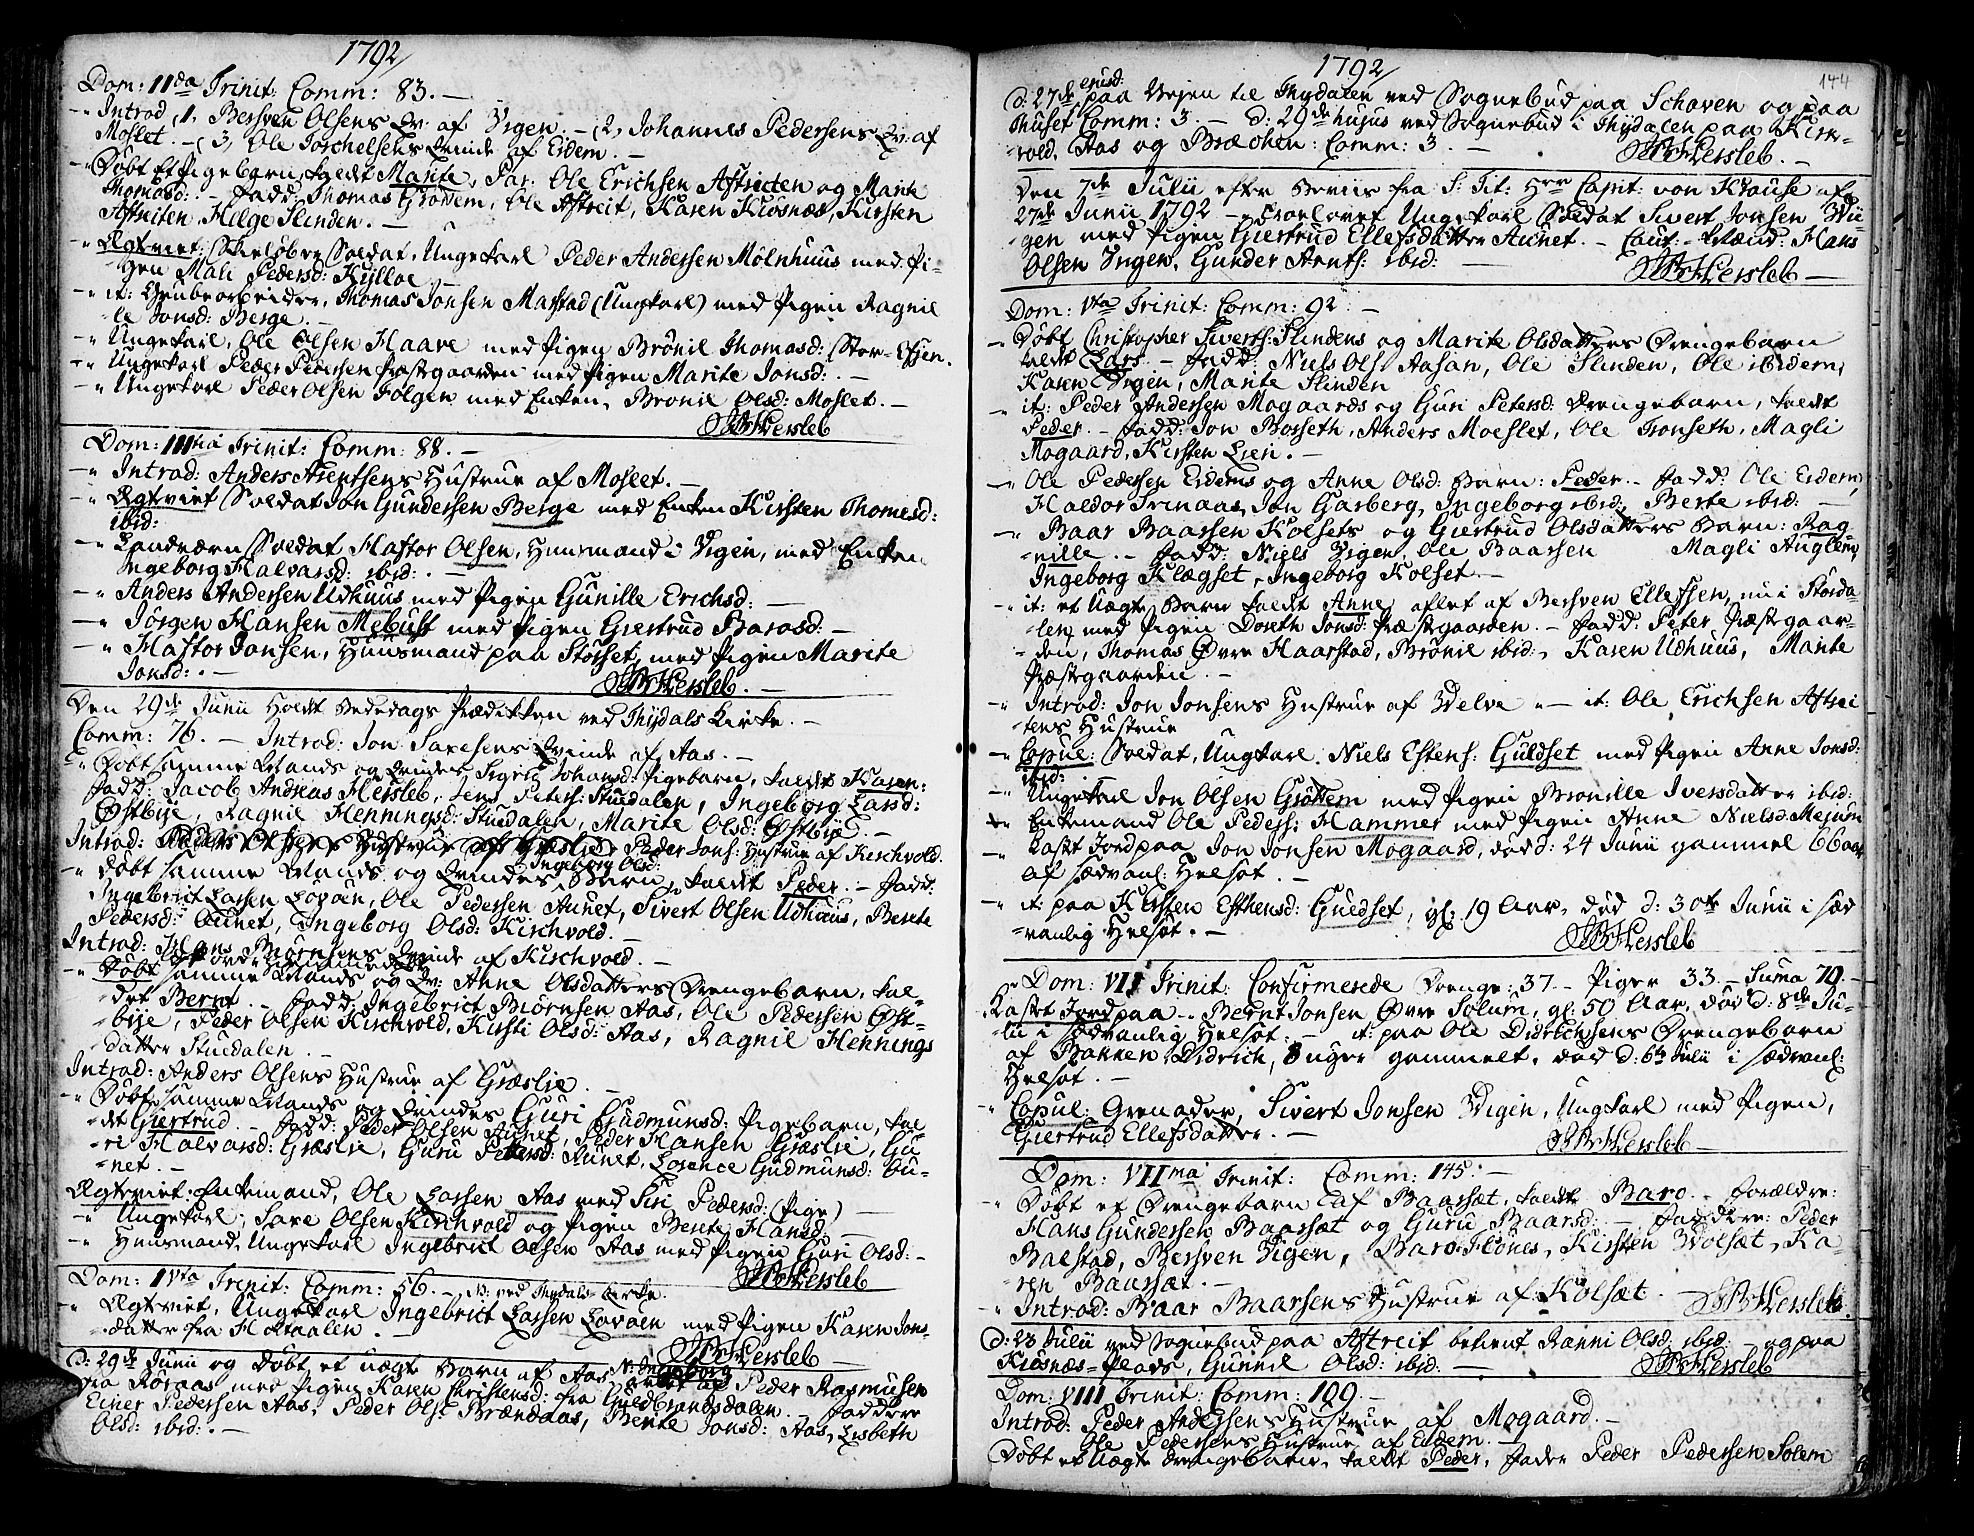 1792/
Dom: IIda Trinit: Comm: 83. —
-„ Introd, 1, Bersven Olsens Qv: af Vigen. — (2, Johannes Pedersens Qv: af
Moslet. — (3, Ole Torchelsens Qvinde af Eidem. —
-„ Döbt Et Pigebarn kaldt Marite, Par: Ole Erichsen Aftreiten og Marite
Thomasd: . — Fadd: Thomas Gröttem, Ole Aftreit, Karen Kiösnæs, Kirsten
Aftreiten, Helge Slinden. —
-„ Ægtviet: Skielöber Soldat, Ungekarl Peder Andersen Mölnhuus med Pi-
gen Mali Pedersd: Kylloe —
-„ it: Grubearbeider, Thomas Jonsen Mastad (Ungkarl) med Pigen Ragnil
le Jonsd: Berge. —
-„ Ungekarl, Ole Olsen Haare med Pigen Brönil Thomasd: Stor-Evjen.
-„ Ungekarl Peder Pedersen Præstgaarden med Pigen Marite Jonsd: . —
-„ Ungekarl Peder Olsen Fölgen med Enken, Bronil Olsd: Moslet. —
Hersleb
Dom: IIItia Trinit: Comm: 88. —
-„ Introd: Anders Arentsens Hustrue af Moslet. —
-„ Ægtviet Soldat Jon Gundersen Berge med Enken Kirsten Thomesd:
ibid:
-„ Landværn Soldat Haftor Olsen, Huusmand i Vigen, med Enken
Ingeborg Halvarsd: ibid: . —
-„ Anders Andersen Udhuus med Pigen Gunille Erichsd: —
-„ Jörgen Hansen Mebust med Pigen Giertrud Barosd: —
-„ Haftor Jonsen, Huusmand paa Stórset, med Pigen Marite
Jonsd: . —
Hersleb. —
Den 29de Junii Holdt Bededags Prædikken ved Thydals Kirke. —
Comm: 76. — Introd: Jon Saxesens Qvinde af Aas. —
-„ Döbt samme Mands og Qvindes Sigrid Johansd: Pigebarn, kaldt Karen:
Fadd: Jacob Andreas Hersleb, Jens Peters: Stuedalen, Ingeborg Larsd:
Östbye, Ragnil Henningsd: Stuedalen, Marite Olsd: Östbye. —
Introd: Peder Jons: Hustrue af Kirchvold.
-„ Döbt samme Mands og Qvindes Ingeborg Olsd: Barn, kaldt Peder. — Fadd:
Ingebrit Larsen Lovöen, Ole Pedersen Aunet, Sivert Olsen Udhuus, Berete
Pedersd: Aunet, Ingeborg Olsd: Kirchvold. —
Introd: Hans Biörnsens Qvinde af Kirchvold. —
-„ Döbt samme Mands og Qv: Anne Olsdatters Drengebarn, kal-
det Bernt. — Fadd: Ingebrict Biörnsen Aas, Ole Pedersen Öst-
bye, Peder Olsen Kirchvold, Kirsti Olsd: Aas, Ragnil Hennings
datter Stuedalen. —
Introd: Anders Olsens Hustrue af Græslie. —
-„ Döbt samme Mands og Qvindes Guri Gudmunsd: Pigebarn, kal-
dt Giertrud. — Fadd: Peder Olsen Aunet, Peder Hansen Græslie, Gu
ri Halvarsd: Græslie, Guru Petersd: Aunet, Lorence Gudmunsd: Au-
net. —
Ægtviet: Enkemand, Ole Larsen Aas med Siri Pedersd: (Pige) —
-„ Ungekarl, Saxe Olsen Kirchvold og Pigen Berite Hansd: —
-„ Huusmand, Ungekarl Ingebrict Olsen Aas med Pigen Guri Olsd: —
Hersleb
Dom: IVta Trinit: Comm: 56. — NB: ved Thydals Kirke.
-„ Ægtviet, Ungekarl Ingebrict Larsen Lovöen med Pigen Karen Jons-
datter fra Hoktaalen. —
Hersleb —
d: 29de Junii og Döbt, et uægte Barn af Aas N: Ingeborg
fra Röraas med Pigen Karen Christensd: fra Guldbrandsdalen. Faddere
Einer Pedersen Aas, Peder Ols: Brændaas, Berite Jonsd: Aas, Lisbeth
Olsd: ibid: . —
1792/
144
d: 27de ejusd: paa Vejen til Thydalen ved Sognebud paa Schaven og paa
Thuset Comm: 3. — d: 29de hujus ved Sognebud i Thydalen paa Kirk-
vold, Aas og Bræchen: Comm: 3. —
Hersleb. —
Den 7de Julii efter Beviis fra S: Tit: Hrr Capit: von Krause af
27de Junii 1792 — Troelovet Ungekarl Soldat Sivert Jonsen Wii-
gen med Pigen Giertrud Ellefsdatter Aunet. — Caut:-Mænd: Hans
Olsen Vigen, Gunder Arnts: ibid: —
Hersleb —
Dom: Vta Trinit: Comm: 92. —
-„ Döbt Christopher Siverts: Slindens og Marite Olsdatters Drengebarn
kaldt Lars. — Fadd: Niels Ols: Aasan, Ole Slinden, Ole ibidem,
Karen Vigen, Marite Slinden
-„ it: Peder Andersen Mogaards og Guri Petersd: Drengebarn, kaldt
Peder. — Fadd: Jon Rosseth, Anders Moeslet, Ole Tronseth, Magli
Mogaard, Kirsten Lien. —
-„ Ole Pedersen Eidems og Anne Olsd: Barn: Peder. — Fadd: Ole Eidem,
Haldor Trinaas, Jon Garberg, Ingeborg ibid:, Berte ibid: —
-„ Baar Baarsen Kolsets og Giertrud Olsdatters Barn: Rag
nille. — Fadd: Niels Vigen, Ole Baarsen Magli Auglem,
Ingeborg Klægset, Ingeborg Kolset. —
-„ it: et Uægte Barn kaldt Anne, aflet af Bersven Ellefsen, nu i Störda-
len, med Pigen Doreth Jonsd: Præstgaarden. — Fadd: Peter Præstgaar-
den, Thomas Övre Haarstad, Brönil ibid:, Karen Udhuus, Marite
Præstgaarden. —
-„ Introd: Jon Jonsens Hustrue af Welve „— it: Ole Erichsen Aftrei
tens Hustrue
-„ Copul: Soldat, Ungkarl. Niels Estens: Guldset med Pigen Anne Jonsd:
ibid: —
-„ Ungekarl Jon Olsen Gröttem med Pigen Bronille Iversdatter ibid:
-„ Enkemand Ole Peders: Hammer med Pigen Anne Nielsd: Mejum
-„ Kastt Jord paa Jon Jonsen Mogaard, död d: 24 Junii gammel 66 aar
af sædvanl: Helsot. —
-„ it: paa Kirsten Esthensd: Guldset, gl: 19 Aar, död d: 30te Junii i sæd
vanlig Helsot. —
Hersleb
-„ Dom: VI Trinit: Confirmerede Drenge: 37 — Piger 33. — Suma 70. —
Kastet Jord paa — Bernt Jonsen Övre Solum, gl: 50 Aar, död d: 8de Ju-
lii i sædvanlig Helsot. — it: paa Ole Didrichsens Drengebarn
af Bakken, Didrich, 8 uger gammelt, död d: 6te Julii i sædvanl:
Helsot. —
-„ Copul: Grenader, Sivert Jonsen Wigen, Ungkarl med Pigen,
Giertrud Ellefsdatter. —
Hersleb —
Dom: VIIma Trinit: Comm: 145. —
-„ Döbt et Drengebarn af Baarsæt, kaldt Baro — Forældre:
Hans Gundersen Baarsæt og Guru Baarsd: — Faddere: Peder
Balstad, Bersven Vigen, Baro Flönes, Kirsten Wolsæt, Ka-
ren Baarsæt. —
-„ Introd: Baar Baarsens Hustrue af Kolsæt. —
Hersleb.
d: 23 Julii ved Sognebud paa Aftreit betient Ranni Olsd: ibid: — og paa
Kiösnæs-Plads, Gunnil Olsd: ibid: —
Hersleb
Dom: VIII Trinit: Comm: 199. —
Introd: Peder Andersens Hustrue af Mogaard. —
Ole Pedersens Hustrue af Eidem. —
Döbt et Uægte Drengebarn, kaldt Peder, Fader Peder Pedersen Solem